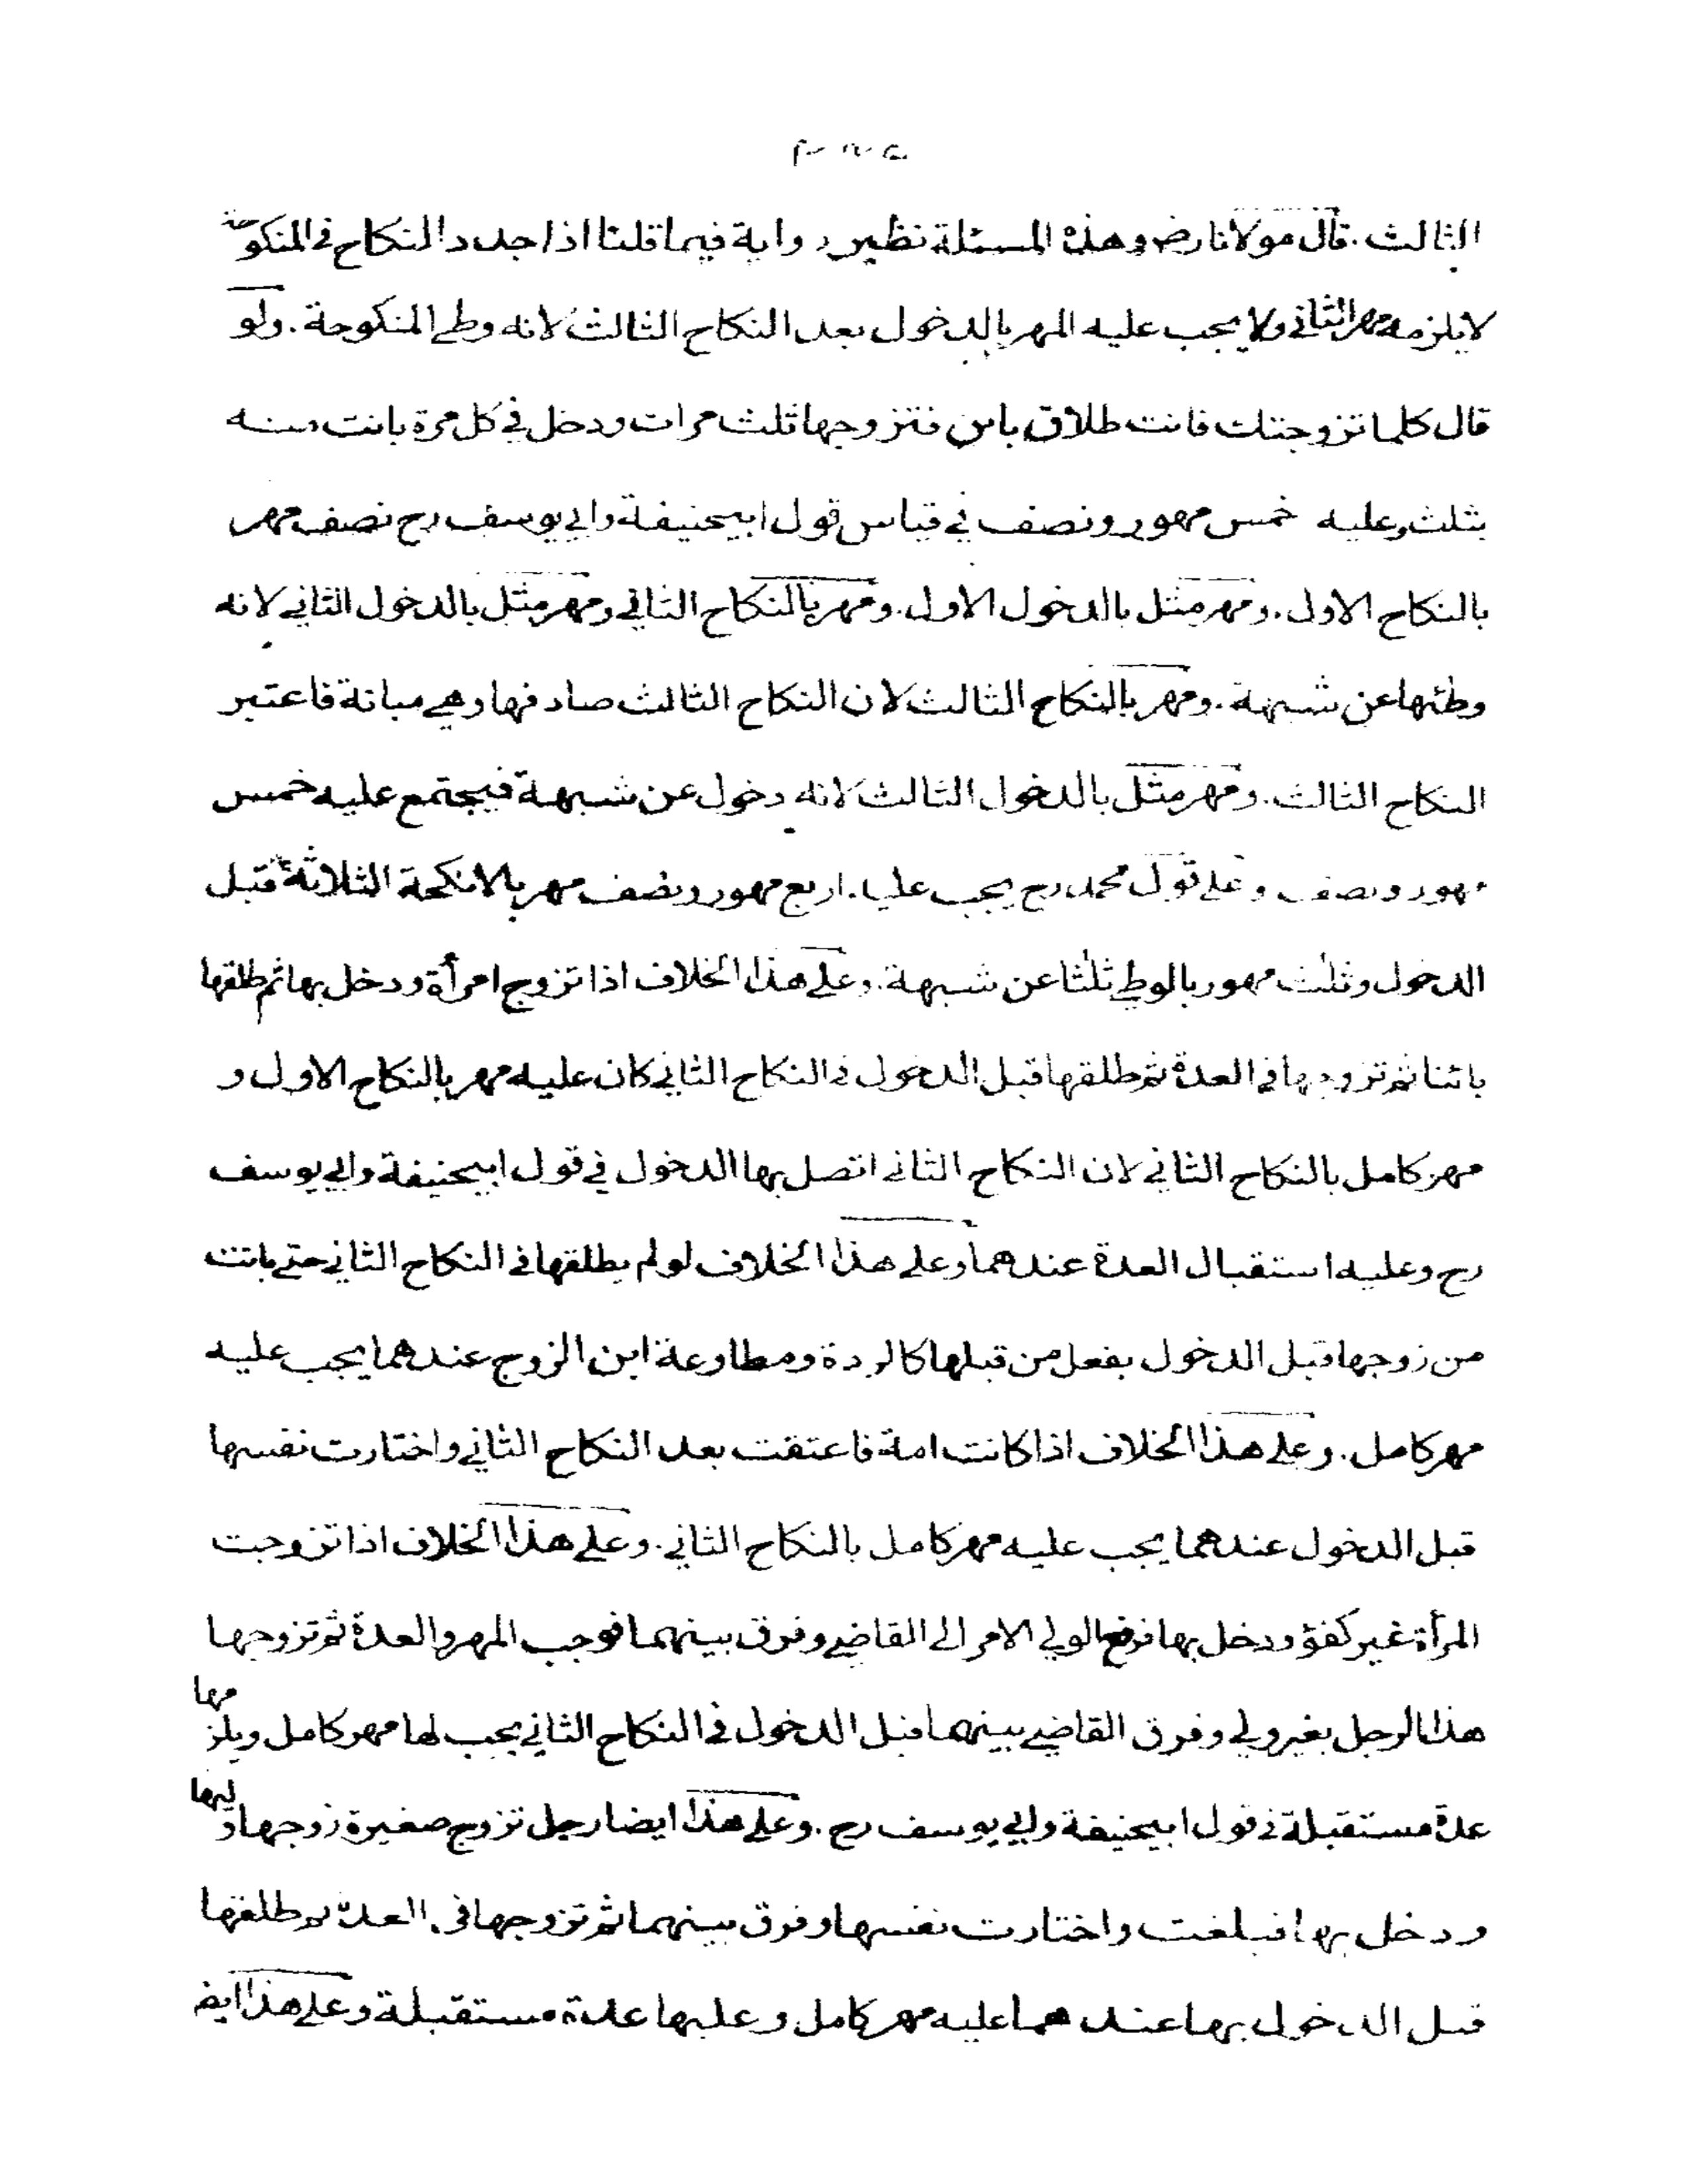 الثالث. قال مولانا رض وهذه المسئلة نظير رواية فيما قلنا اذا جدد النكاح في المنكوحة
لا يلزمه مهر الثاني ولا يجب عليه المهر بالدخول بعد النكاح الثالث لانه وطى المنكوحة. ولو
قال كلما تزوجتك فانت طلاق باين فتزوجها ثلث مرات ودخل في كل مرة بانت منه
بثلث وعليه خمس مهور ونصف في قياس قول ابيحنيفة وابي يوسف رح نصف مهر
بالنكاح الاول. ومهر مثل بالدخول الاول. ومهر بالنكاح الثاني ومهر مثل بالدخول الثاني لانه
وطئها عن شبهة. ومهر بالنكاح الثالث لان النكاح الثالث صادفها وهي مبانة فاعتبر
النكاح الثالث. ومهر مثل بالدخول الثالث لانه دخول عن شبهة فيجتمع عليه خمس
مهور ونصف وعلى قول محمد رح يجب عليه. اربع مهور ونصف مهر بالانكحة الثلاثة قبل
الدخول وثلث مهور بالوطي ثلثا عن شبهة. وعلى هذا الخلاف اذا تزوج امرأة ودخل بها ثم طلقها
بائنا ثم تزوجها في العدة ثم طلقها قبل الدخول في النكاح الثاني كان عليه مهر بالنكاح الاول و
مهر كامل بالنكاح الثاني لان النكاح الثاني اتصل بها الدخول في قول ابيحنيفة وابي يوسف
رح وعليه استقبال العدة عندهما وعلى هذا الخلاف لو لم يطلقها في النكاح الثاني حتى بانت
من زوجها قبل الدخول بفعل من قبلها كالردة ومطاوعة ابن الزوج عندهما يجب عليه
مهر كامل. وعلى هذا الخلاف اذا كانت امة فاعتقت بعد النكاح الثاني واختارت نفسها
قبل الدخول عندهما يجب عليه مهر كامل بالنكاح الثاني. وعلى هذا الخلاف اذا تزوجت
المرأة غير كفؤ ودخل بها فرفع الولي الامر الى القاضي وفرق بينهما فوجب المهر والعدة ثم تزوجها
هذا الرجل بغير ولي وفرق القاضي بينهما قبل الدخول في النكاح الثاني يجب لها مهر كامل ويلزمها
عدة مستقبلة في قول ابيحنيفة وابي يوسف رح. وعلى هذا ايضا رجل تزوج صغيرة زوجها وليها
ودخل بها فبلغت واختارت نفسها وفرق بينهما ثم تزوجها في العدة ثم طلقها
قبل الدخول بها عندهما عليه مهر كامل وعليها عدة مستقبلة وعلى هذا ايض